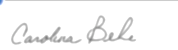 Carolina Bele